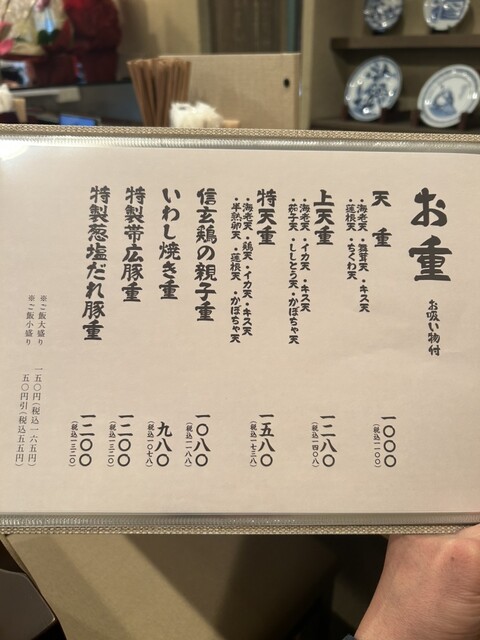 お重
お吸い物付
天重
・海老天・舞茸天・キス天
・蓮根天・ちくわ天
一〇〇〇
(税込一一〇〇)
上天重
・海老天・イカ天・キス天
・茄子天・ししとう天・かぼちゃ天
一二八〇
(税込一四〇八)
特天重
・海老天・鶏天・イカ天・キス天
・半熟卵天・蓮根天・かぼちゃ天
一五八〇
(税込一七三八)
信玄鶏の親子重
一〇八〇
(税込一一八八)
いわし焼き重
九八〇
(税込一〇七八)
特製帯広豚重
一二〇〇
(税込一三二〇)
特製葱塩だれ豚重
一二〇〇
(税込一三二〇)
※ご飯大盛り 一五〇円(税込一六五円)
※ご飯小盛り 五〇円引(税込五五円)